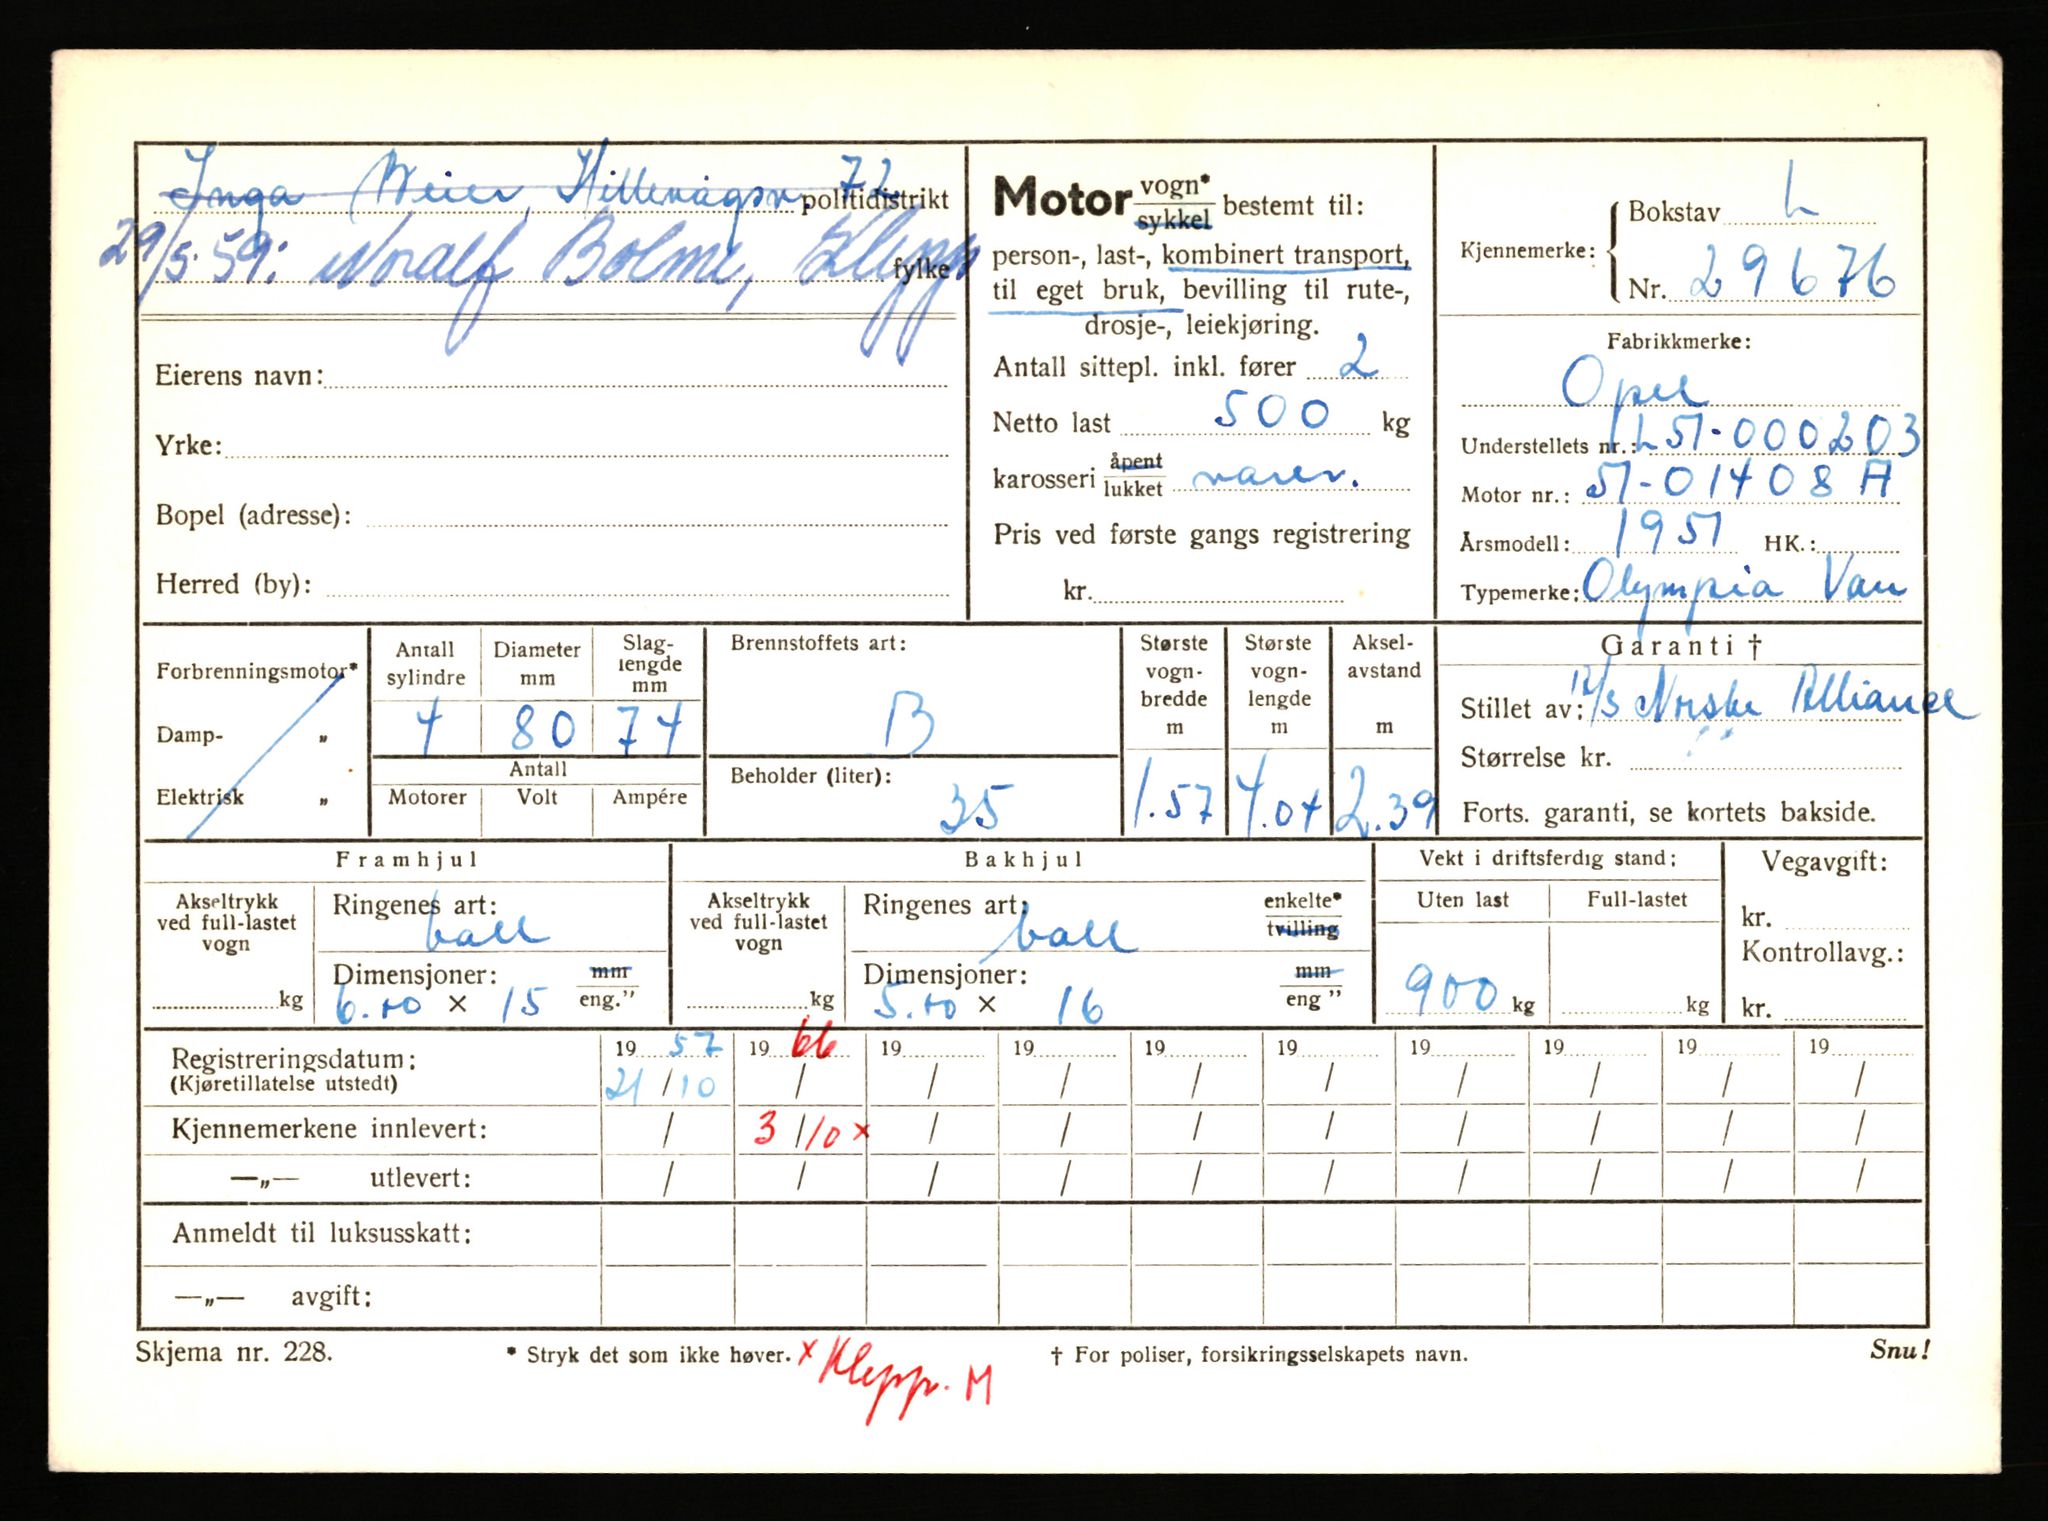 Inga Meier, Hillevågsv. 72 politidistrikt
29/5.59: Noralf Bolme, Klepp fylke
Eierens navn:
Yrke:
Bopel (adresse):
Herred (by):
Motor vogn* sykkel bestemt til:
person-, last-, kombinert transport,
til eget bruk, bevilling til rute-,
drosje-, leiekjøring.
Antall sittepl. inkl. fører 2
Netto last 500 kg
karosseri åpent lukket varev.
Pris ved første gangs registrering
kr.
Kjennemerke: Bokstav L
Nr. 29676
Fabrikkmerke:
Opel
Understellets nr.: L51-000203
Motor nr.: 51-01408 A
Årsmodell: 1951 HK.:
Typemerke: Olympia Van
Forbrenningsmotor*
Damp- „
Elektrisk „
Antall sylindre Diameter mm Slag-lengde mm
4 80 74
Antall
Motorer Volt Ampére
Brennstoffets art:
B
Beholder (liter):
35
Største vogn-bredde m Største vogn-lengde m Aksel-avstand m
1.57 4.04 2.39
Garanti †
Stillet av: 12/3 Norske Alliance
Størrelse kr.
Forts. garanti, se kortets bakside.
Framhjul
Akseltrykk ved full-lastet vogn
kg
Ringenes art:
ball
Dimensjoner: mm
6.40 × 15 eng."
Bakhjul
Akseltrykk ved full-lastet vogn
kg
Ringenes art: enkelte*
ball tvilling
Dimensjoner: mm
5.40 × 16 eng "
Vekt i driftsferdig stand:
Uten last Full-lastet
900 kg kg
Vegavgift:
kr.
Kontrollavg.:
kr.
Registreringsdatum: 19 57 19 66 19 19 19 19 19 19 19 19
(Kjøretillatelse utstedt) 21/10 / / / / / / / / /
Kjennemerkene innlevert: / 3/10 × / / / / / / / /
—„— utlevert: / / / / / / / / / /
Anmeldt til luksusskatt:
—„— avgift:
Skjema nr. 228. * Stryk det som ikke høver. × Klepp. M † For poliser, forsikringsselskapets navn. Snu!